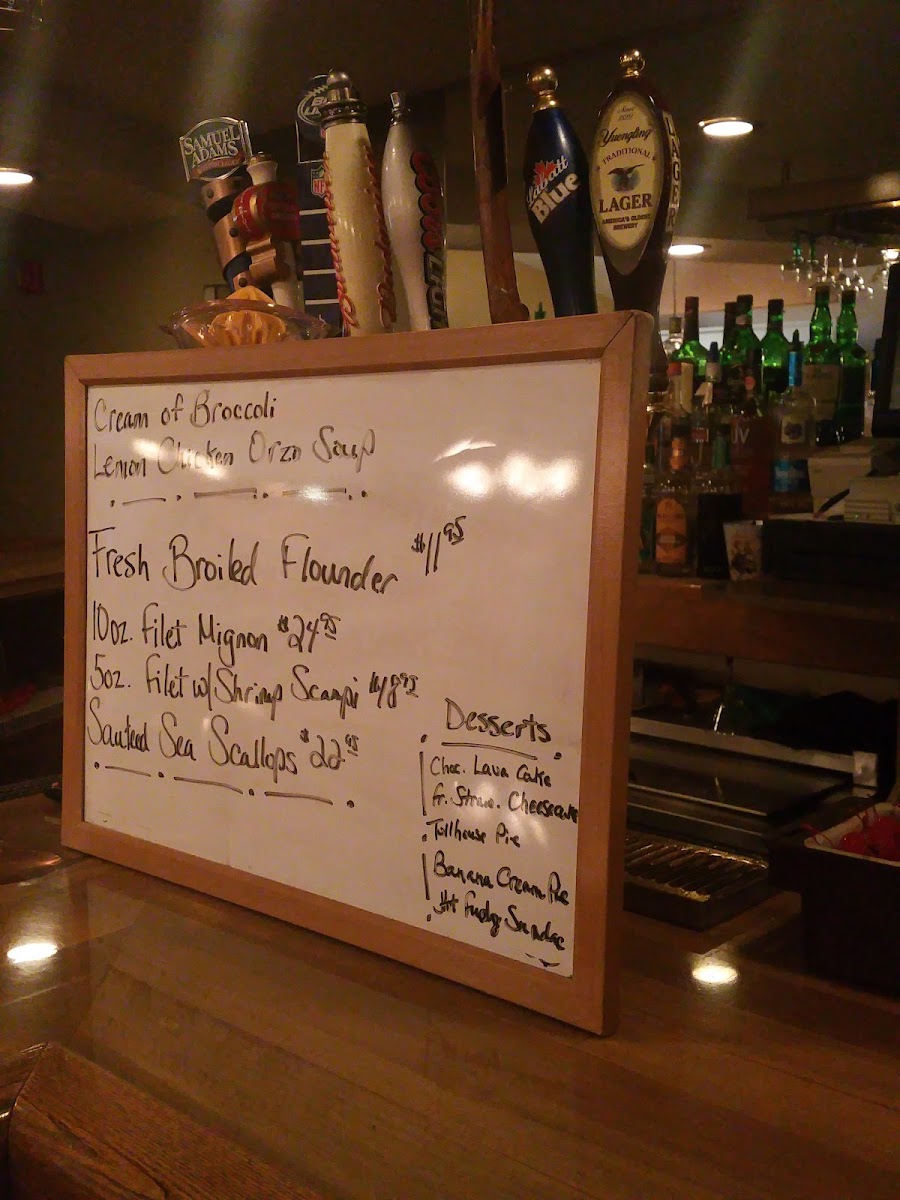 SAMUEL ADAMS
NFL
Labatt Blue
Since 1829
Yuengling
TRADITIONAL
LAGER
AMERICA'S OLDEST BREWERY
LAGER
Cream of Broccoli
Lemon Chicken Orzo Soup
Fresh Broiled Flounder $11.95
10oz. Filet Mignon $24.95
5oz. Filet w/ Shrimp Scampi
Sauteed Sea Scallops $22.95
Desserts
Choc. Lava Cake
fr. Straw. Cheesecake
Tollhouse Pie
Banana Cream Pie
Hot Fudge Sundae